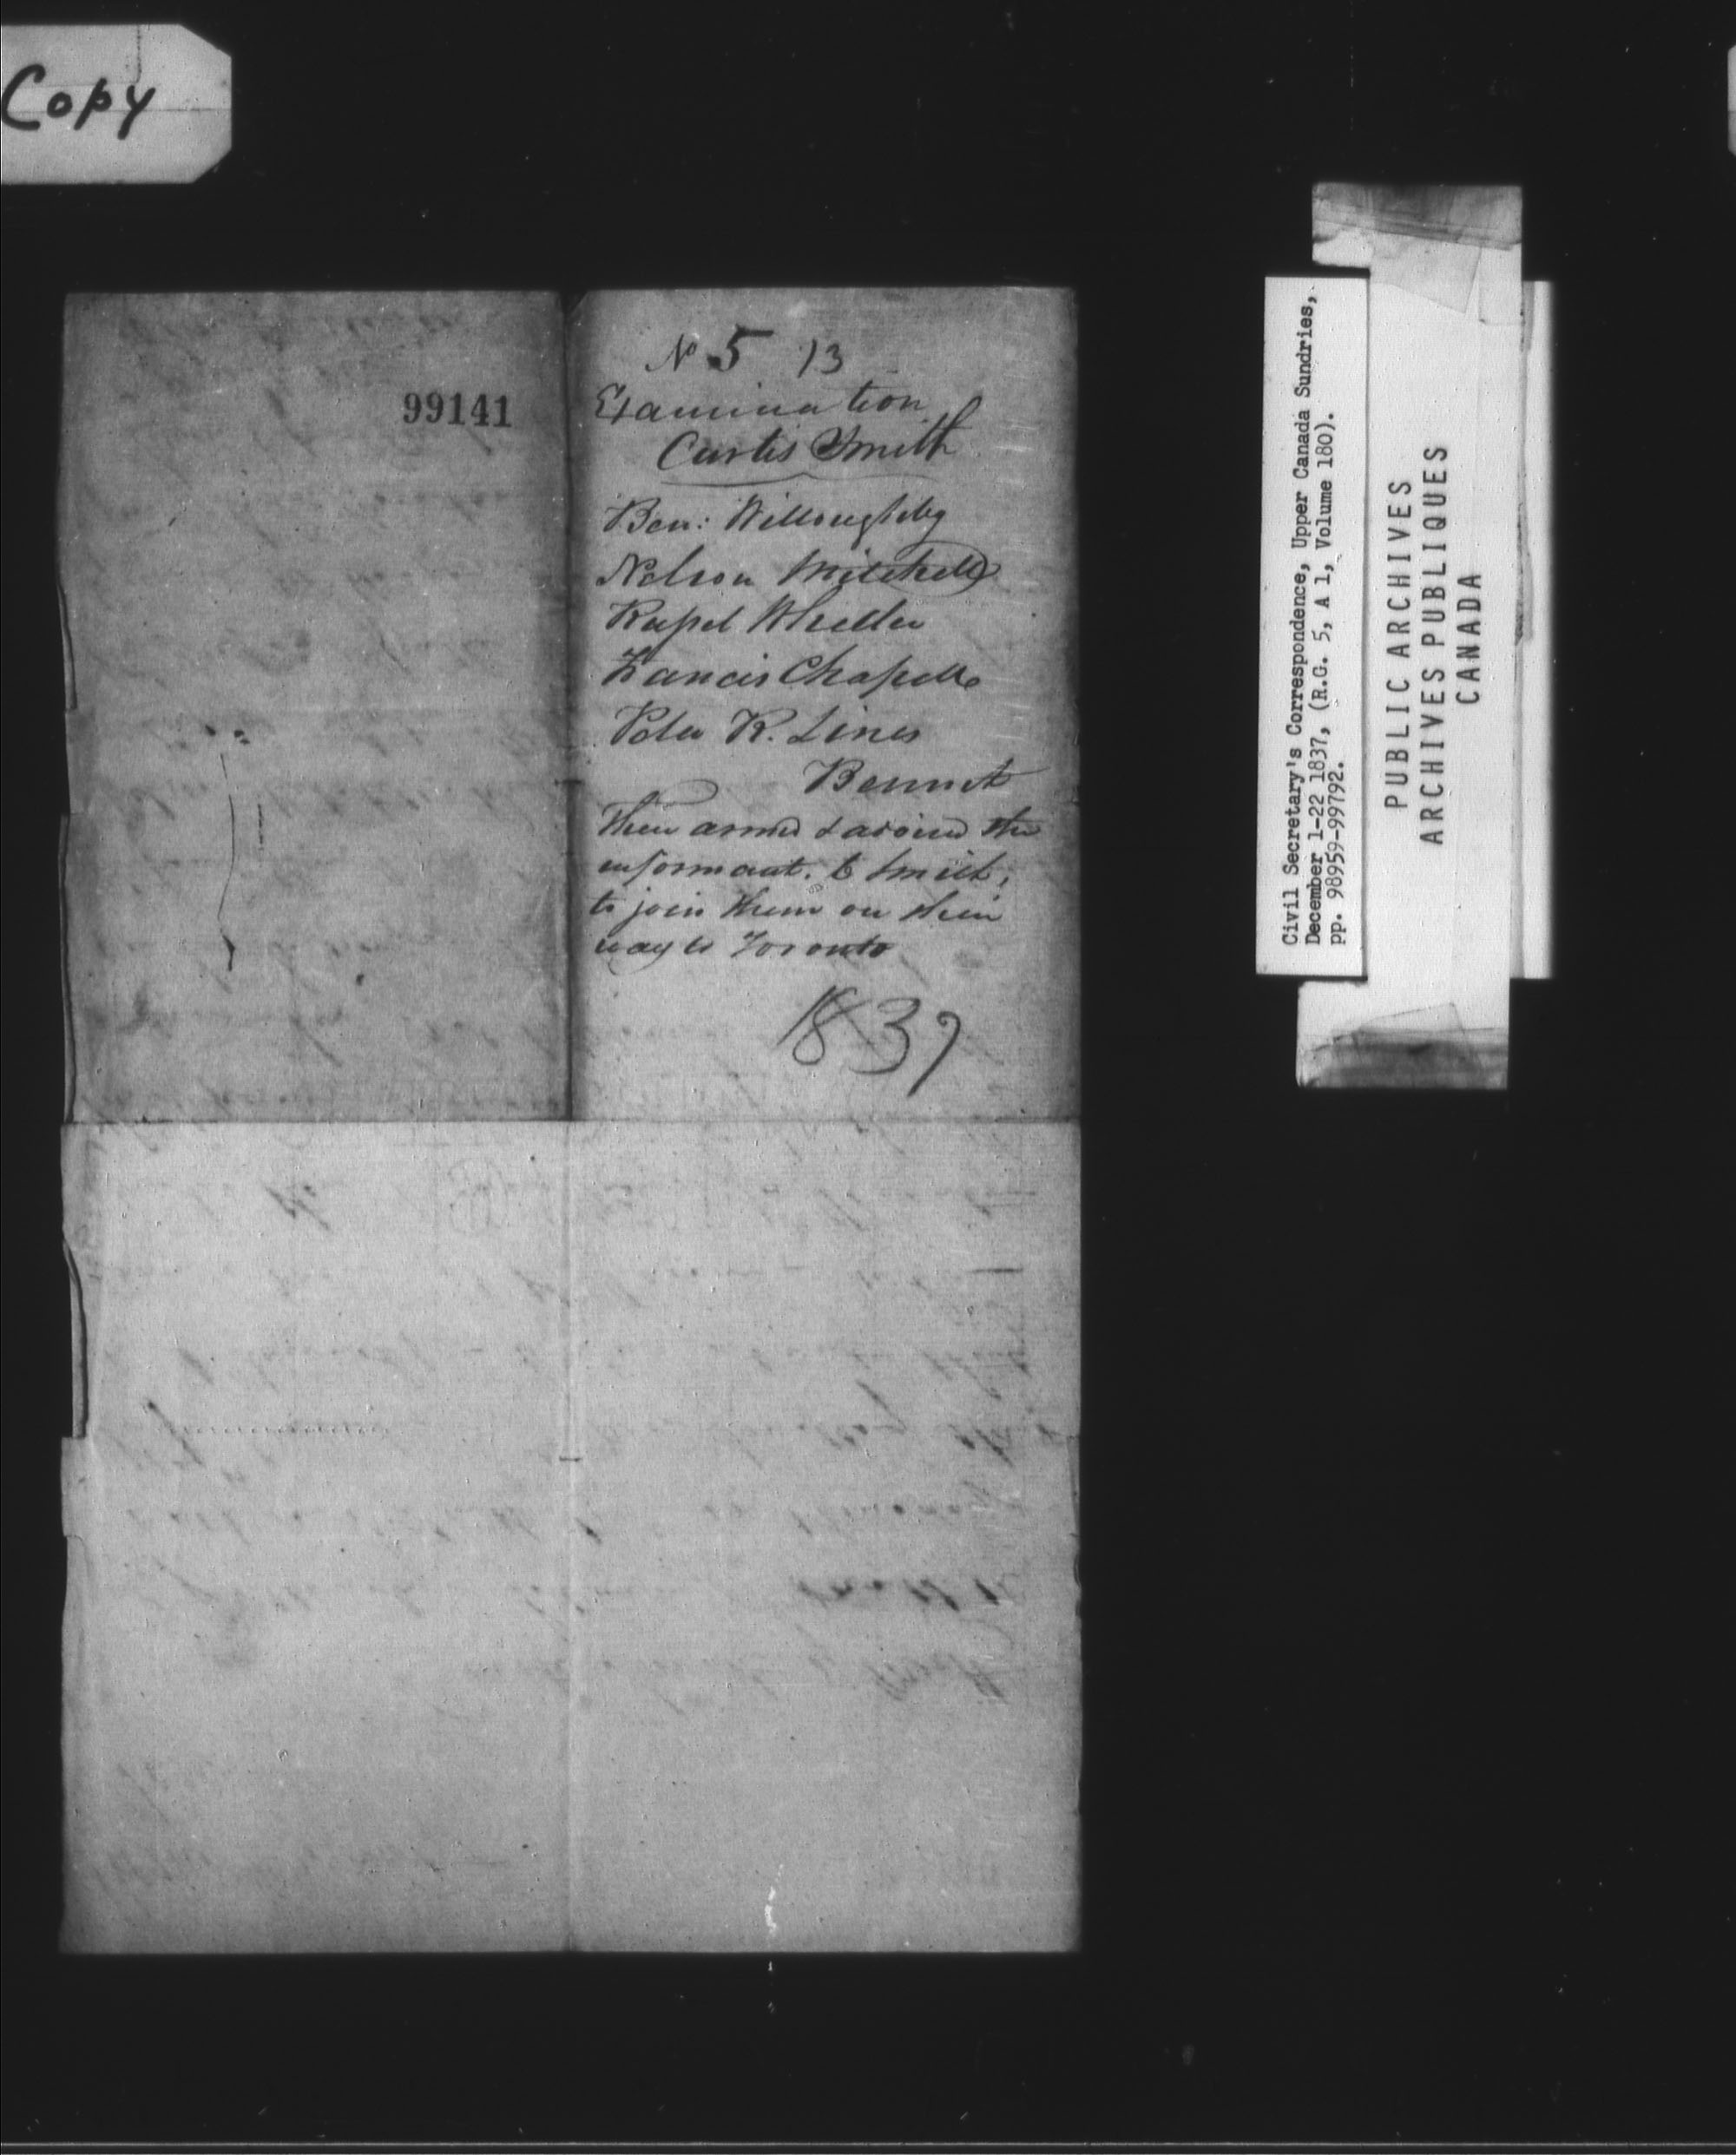 Copy
99141
No 5 13
Examination
Curtis Smith
Ben: Willoughby
Nelson Mitchell
Rupel Wheller
Francis Chapelle
Peter R. Lines
Bennet
Then armed & advised the
informant. C Smith,
to join them on their
way to Toronto
1837
Civil Secretary's Correspondence, Upper Canada Sundries,
December 1-22 1837, (R.G. 5, A 1, Volume 180).
pp. 98959-99792.
PUBLIC ARCHIVES
ARCHIVES PUBLIQUES
CANADA